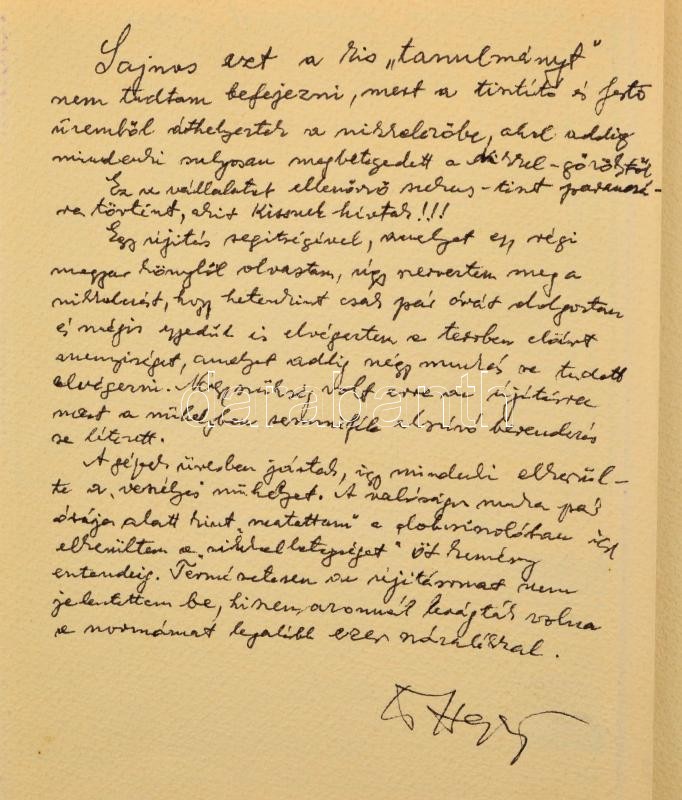 Sajnos ezt a kis „tanulmányt”
nem tudtam befejezni, mert a tisztító és festő
üzemből áthelyeztek a nikkelezőbe, ahol addig
mindenki súlyosan megbetegedett a nikkel-gőzöktől
Ez a vállalatot ellenőrző -tiszt parancsá-
ra történt, akit Kissnek hívtak!!!
Egy újítás segítségével, amelyet egy régi
magyar könyből olvastam, úgy szerveztem meg a
nikkelezést, hogy hetenkint csak pár órát dolgoztam
és mégis egyedül is elvégeztem a tervben előirt
mennyiséget, amelyet addig négy munkás se tudott
elvégezni. Nagy szükség volt erre az újításra
mert a műhelyben semmiféle elszívó berendezés
se létezett.
A gépek üresben jártak, így mindenki elkerül-
te a „veszélyes” műhelyet. A valóságos munka pár
órája alatt kint „matattam” a
elkerültem a „nikkelbetegséget” öt kemény
esztendeig. Természetesen az újításomat nem
jelentettem be, hiszen azonnal levágták volna
a normámat legalább ezer százalékkal.
darabanth